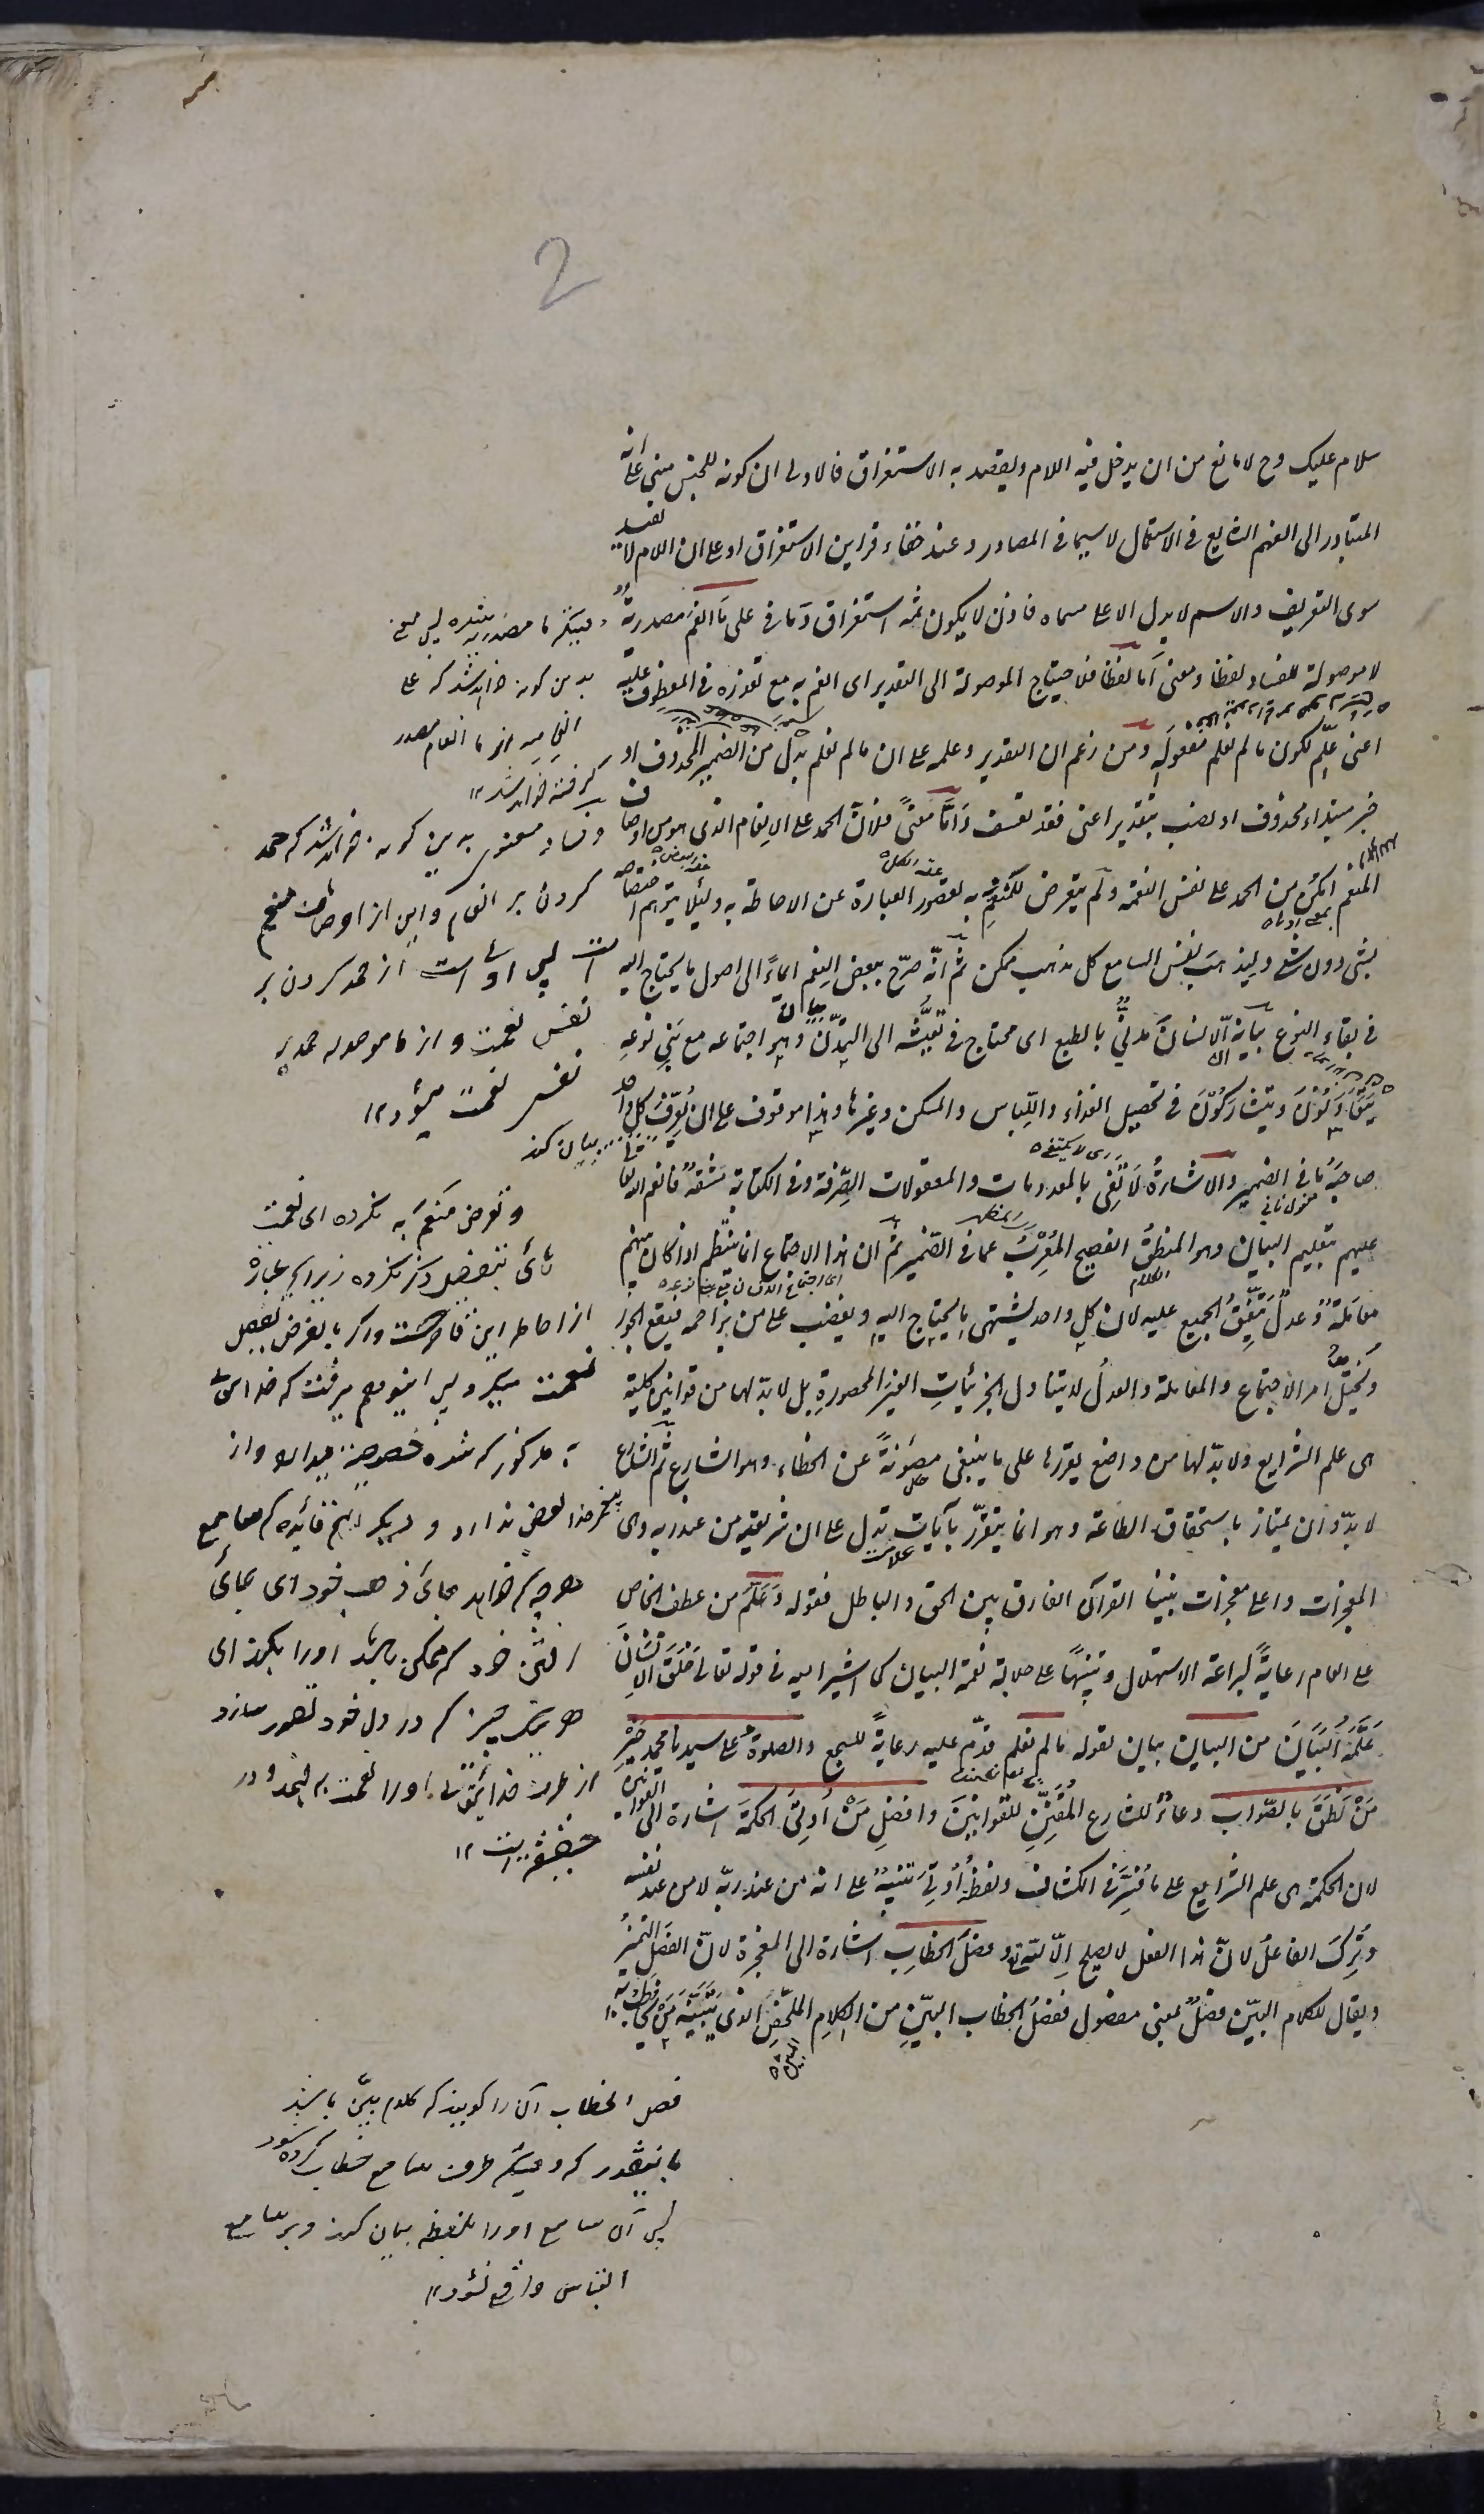 2
سلام عليك وح لا مانع من ان يدخل فيه اللام ويقصد به الاستغراق فالاولى ان كونه للجنس مبنى على انه
المتبادر الى الفهم الشايع فى الاستعمال لا سيما فى المصادر وعند خفاء قراين الاستغراق او على ان اللام لا تفيد
سوى التعريف والاسم لا يدل الا على مسماه فاذن لا يكون ثمه استغراق وَمَا فى على مَا انعم مصدريةٌ
لا موصولة للفساد لفظا ومعنى اَما لفظاً فلاحتياج الموصولة الى التقدير اى انعم به مع تعذره فى المعطوف عليه
اعنى علّم لكون ما لم نعلم مفعوله ومن زعم ان التقدير وعلمه على ان ما لم نعلم بدل من الضمير المحذوف او
خبر مبتداء محذوف او نصب بتقدير اعنى فقد تعسف وَامَّا معنًى فلانّ الحمد على الانعام الذى هو من اوصاف
المنعم امكن من الحمد على نفس النعمة ولَم يتعرض للمُنعَم به لقصور العبارة عن الاحاطة به ولئلا يتوهم اختصاصه
بشئ دون شئ وليذهب نفس السامع كل مذهب ممكن ثمّ انّه صرّح ببعض النِعَم ايماءً الى اصول ما يحتاج اليه
فى بقاء النوع بيانه اَنّ الانسانَ مدنىٌّ بالطبع اى محتاج فى تعيُّشه الى التمدّن وهو اجتماعه مع بَنِى نوعِه
يَتَعَاوَنُوْنَ ويَتَشَارَكُوْنَ فى تحصيل الغذاء واللّباس والمسكن وغيرها وهذا موقوف على ان يُعرِّفَ كل واحد
صاحبَه ما فى الضمير والاشارةُ لَا تَفِى بالمعدومات والمعقولات الصّرفة وفى الكتابة مَشقّةٌ فانعم الله تعالى
عليهم بتعليم البيان وهو المنطقُ الفصيح المُعْرِبُ عمّا فى الضمير ثمّ ان هذا الاجتماع انما ينتظم اذا كان بينهم
معاملةٌ وعدلٌ يتّفِقُ الجميع عليه لان كل واحد يشتهى ما يحتاج اليه ويغضب على من يزاحمه فيقع الجور
ويختلّ امر الاجتماع والمعاملة والعدلُ لا يتناول الجزئيات الغير المحصورةِ بل لا بدّ لها من قوانين كلية
هى علم الشرايع ولا بدّ لها من واضع يقررها على ما ينبغى مصُونةً عن الخطاء وهو الشارع ثُمّ الشارع
لا بدّ وان يمتاز باستحقاق الطاعة وهو انما يتقرّر بآيات تدل على ان شريعته من عند ربه وهى
المعجزات واعلى معجزات نبينا القرآن الفارق بين الحق والباطل فقوله وَعلّم من عطف الخاص
على العام رعايةً لبراعة الاستهلال وتنبيهًا على جلالة نعمة البيان كما اشير اليه فى قوله تعالى خَلَقَ الاِنسانَ
عَلَّمَهُ البَيَانَ من البيان بيان لقوله مالم نعلم قدّم عليه رعايةً للسجع والصلوة على سيدنا محمد خَيْرِ
مَنْ نَطَقَ بالصّواب دعاءٌ للشارع المُقَنِّنِ للقوانين وافضلِ مَنْ اُوتِىَ الحكمَة اشارة الى القوانين
لان الحكمة هى علم الشرايع على ما فُسِّرَ فى الكشاف ولفظُ اُوتِىَ تنبيهٌ على انه من عند ربّه لا من عند نفسه
وتُرِكَ الفاعلُ لانّ هذا الفعل لا يصلح اِلّا للّه وفصلَ الخطابِ اشارة الى المعجزة لانّ الفصلَ التميزُ
ويقال للكلام البيّن فصلٌ بمعنى مفصول ففصلُ الخطاب البيّنِ من الكلام الملخّصِ الذى يتبيّنه مَن يُخاطب به
وقتيكه ما مصدريه شده پس معنى
بدين گونه خواهد شد كه على
انعامه انچه ما انعام مصدر
گرفته خواهد شد ١٢
وفساد معنوى به اين گونه خواهد شد كه حمد
كردن بر انعام واين از اوصاف منعم
است پس اولى است از حمد كردن بر
نفس نعمت واز ما موصوله حمد بر
نفس نعمت ميشود ١٢
بيان كند
وتعرض منعم به نكرده اى نعمت
هاى بتفصيل ذكر نكرده زيرا كه عبارة
از احاطه اين قاصر است واگر بالفرض بعض
نعمت ميگرد پس اين وهم ميرفت كه
هر چه خواهد بجائى ذهب خود اى بجائى
رفتن خود كه ممكن باشد اورا بكند اى
هر يك چيز كه در دل خود تصور سازد
از طرف خدا تعالى اورا نعمت
فصل الخطاب آن را گويند كه كلام بيّن باشد
باينقدر كه وقتيكه طرف سامع خطاب كرده شود
پس آن سامع اورا بلفظه بيان كند وبر سامع
التباس واقع نشود ١٢